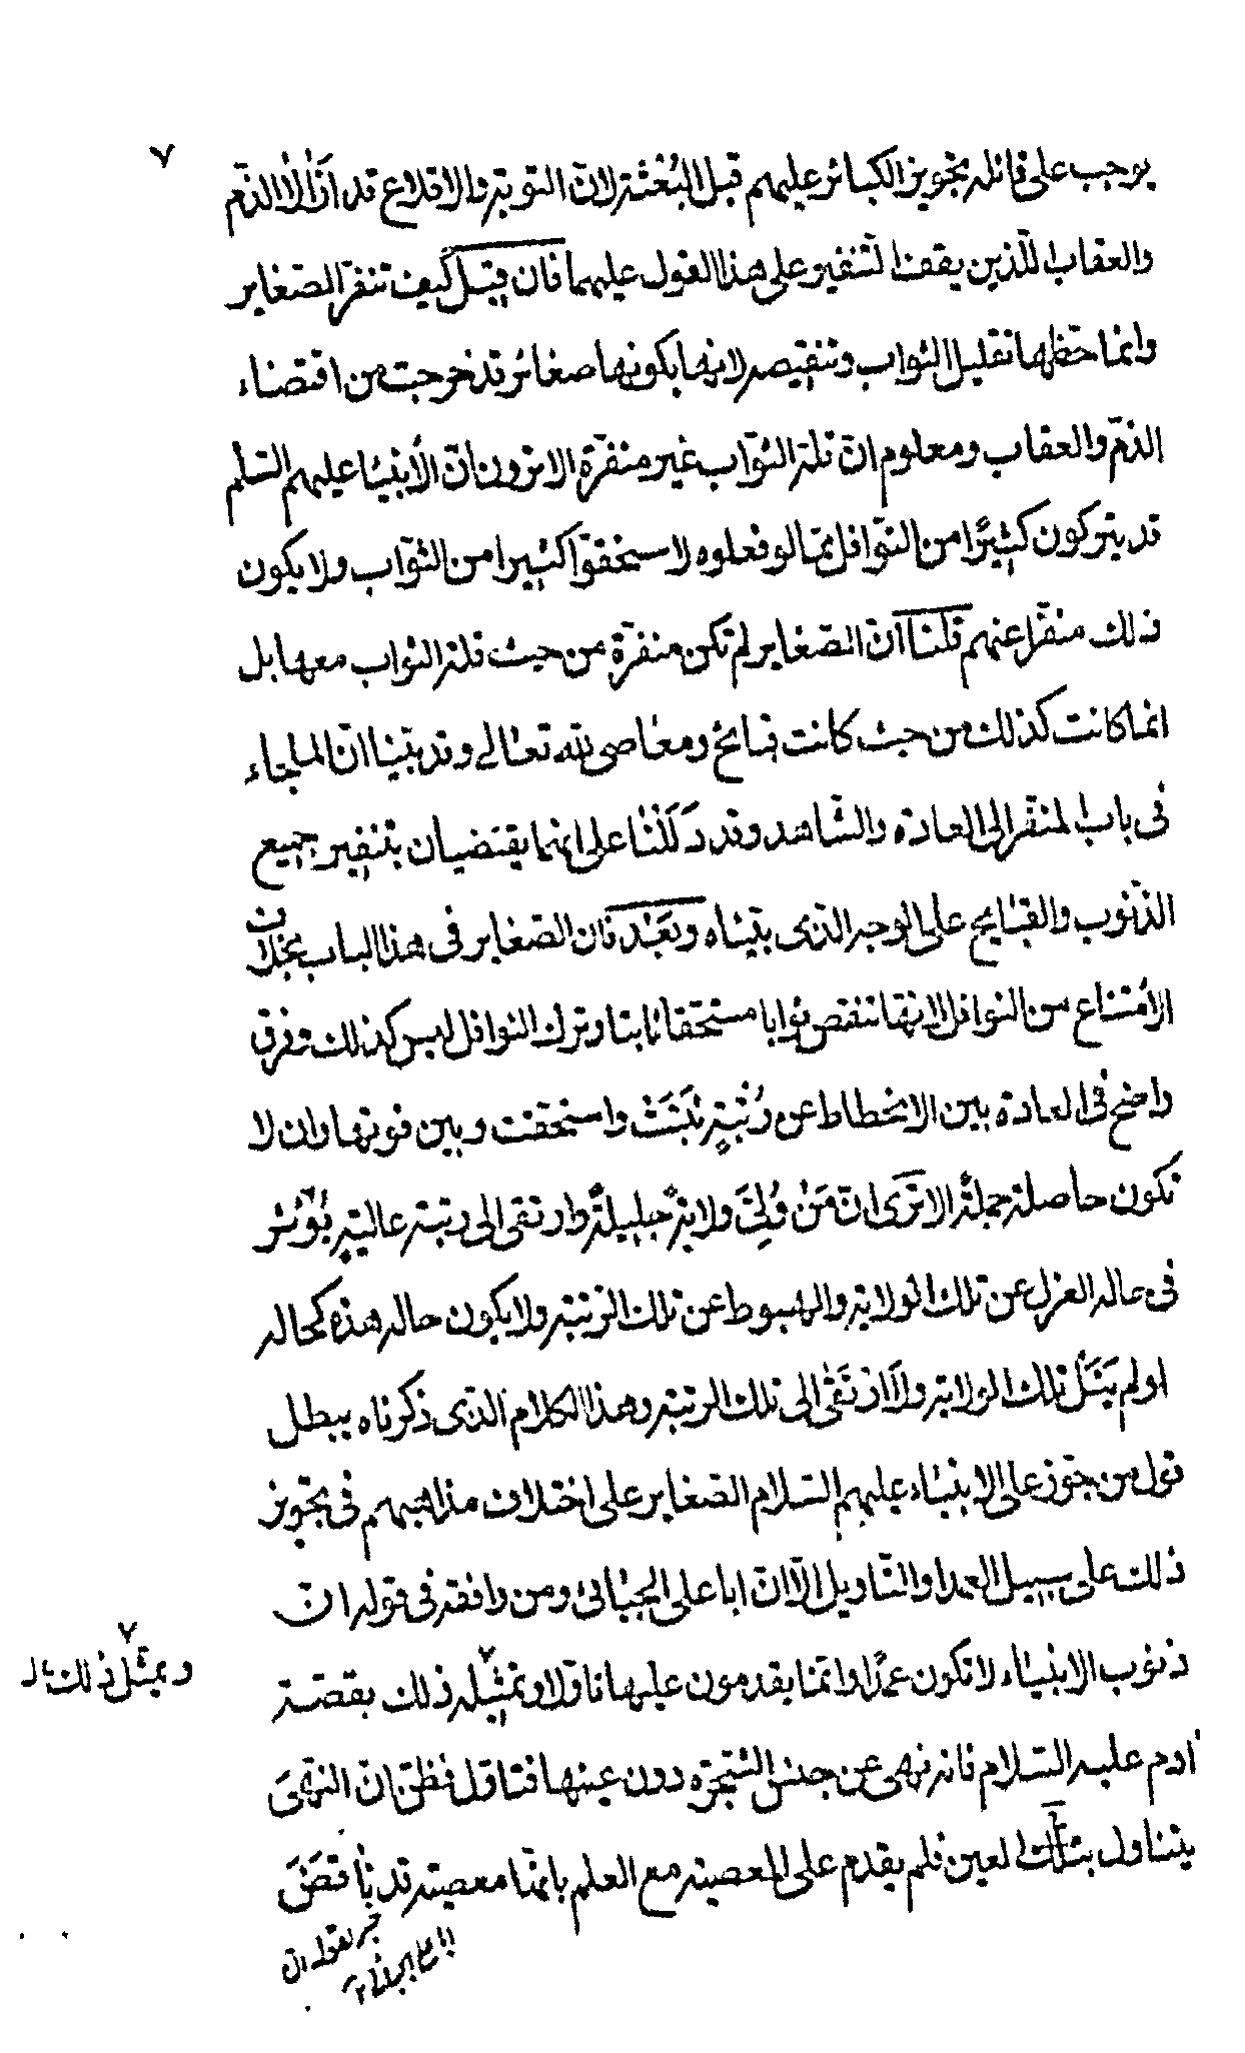 ٧
يوجب على قائله تجويز الكبائر عليهم قبل البعثة لانّ التوبة والاقلاع قد ازالا الذّم
والعقاب اللّذين يقف التنفير على هذا القول عليهما فان قيل كيف تنفر الصّغاير
وانما حظّها تقليل الثواب وتنقيصه لانها بكونها صغائر قد خرجت من اقتضاء
الذمّ والعقاب ومعلوم انّ قلة الثوّاب غير منفرّة الا ترون انّ الأنبيا عليهم السّلم
قد يتركون كثيرًا من النوّافل ممّا لو فعلوه لاستحقوّا كثيرا من الثوّاب ولا يكون
ذلك منفّرا عنهم قلنا انّ الصّغاير لم تكن منفرّة من حيث قلة الثواب معها بل
انما كانت كذلك من حيث كانت قبائح ومعاصى لله تعالى وقد بيّنا انّ الملجاء
فى باب المنفّر الى العادة والشّاهد وقد دَلَلْنا على انهما يقتضيان بتنفير جميع
الذّنوب والقبايح على الوجه الذّى بيّناه وبَعْد فان الصّغاير فى هذا الباب بخلاف
الأمتناع من النوافل لانهّا تنقص ثوابا مستحقا ثابتا وترك النوافل ليس كذلك وفرق
واضح فى العادة بين الانحطاط عن رُتْبةٍ ثَبَتَتْ واستحقت وبين فوتها وان لا
تكون حاصلة جملةً الا تَرَى انّ مَنْ وُلِىَّ ولاية جليلةً وارتقى الى رتبة عاليةٍ يؤثر
فى حاله العزل عن تلك الولاية والهبوط عن تلك الرّتبة ولا يكون حاله هذه كحاله
او لم يَنَل تلك الولاية ولا ارْتَقٰى الى تلك الرتبة وهذا الكلام الذّى ذكرناه يبطل
قول من جوّز على الانبياء عليهم السّلام الصّغاير على اختلاف مذاهبهم فى تجويز
ذلك على سبيل العمد او التّاويل الّا انّ ابا على الجبّائى ومن وافقه فى قوله انّ
ذنوب الانبياء لا تكون عمدًا وانمّا يقدمون عليها تاوّلا ونمثيله ذلك بقصّة
ويمثّل ذلك
ادم عليه السّلام فانه نهى عن جنس الشّجرة دون عينها فتاوّل فظنّ انّ النّهىَ
يتناول العين فلم يقدم على المعصية مع العلم بانهّا معصية قد نٰاقضَ
ابا على الجبائى